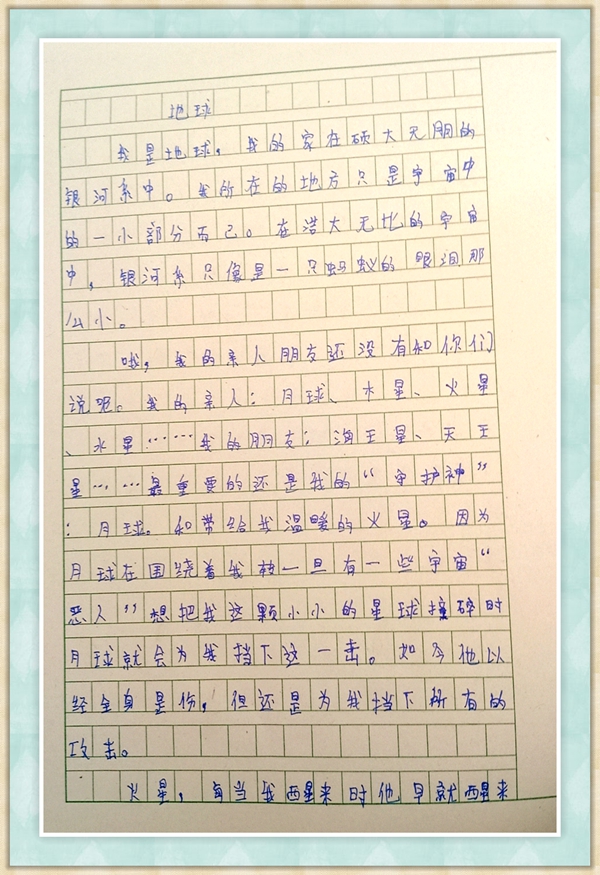 地球
我是地球，我的家在硕大无朋的
银河系中。我所在的地方只是宇宙中
的一小部分而己。在浩大无比的宇宙
中，银河系只像是一只蚂蚁的眼泪那
么小。
哦，我的亲人朋友还没有和你们
说呢。我的亲人：月球、水星、火星
、水星……我的朋友：海王星、天王
星……最重要的还是我的“守护神”
：月球。和带给我温暖的火星。因为
月球在围绕着我转一旦有一些宇宙“
恶人”想把我这颗小小的星球撞碎时
月球就会为我挡下这一击。如今他以
经全身是伤，但还是为我挡下所有的
攻击。
火星，每当我醒来时他早就醒来